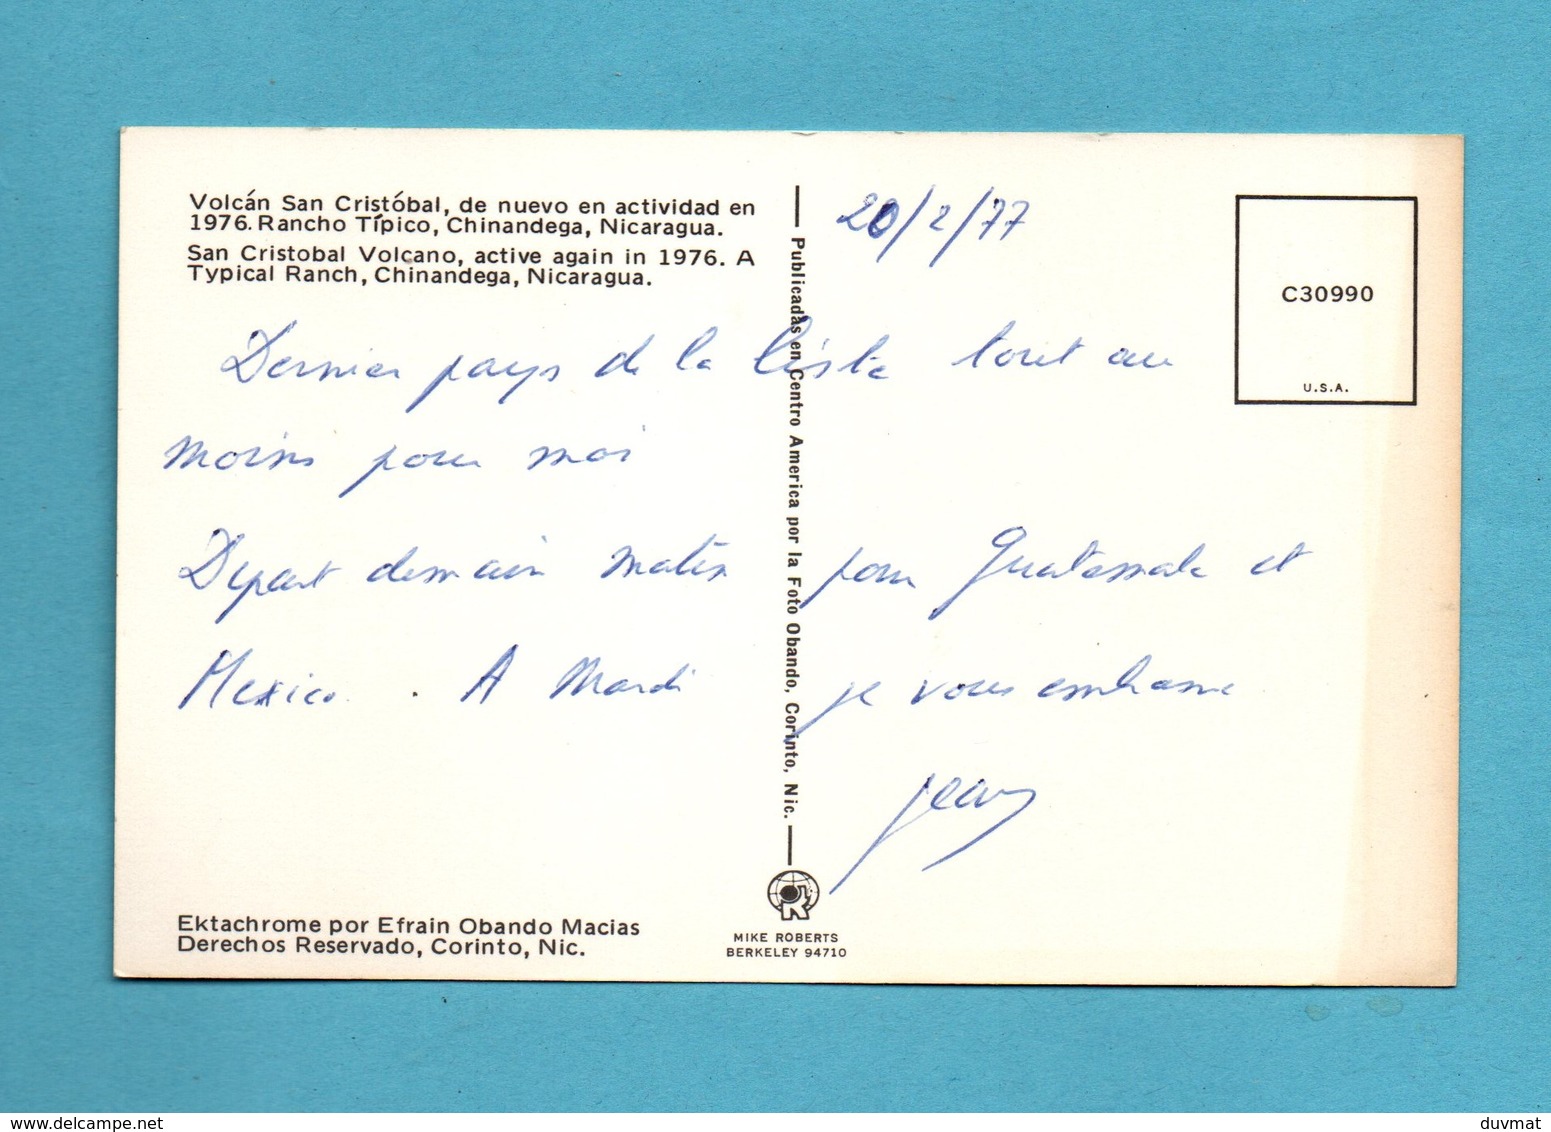 Volcán San Cristóbal, de nuevo en actividad en
1976. Rancho Típico, Chinandega, Nicaragua.
San Cristobal Volcano, active again in 1976. A
Typical Ranch, Chinandega, Nicaragua.
20/2/77
C30990
U.S.A.
Dernier pays de la liste tout au
moins pour moi
Depart demain matin pour Guatemala et
Mexico. A Mardi je vous embrasse
Jean
Publicadas en Centro America por la Foto Obando, Corinto, Nic.
Ektachrome por Efrain Obando Macias
Derechos Reservado, Corinto, Nic.
MIKE ROBERTS
BERKELEY 94710
delcampe.net
duvmat